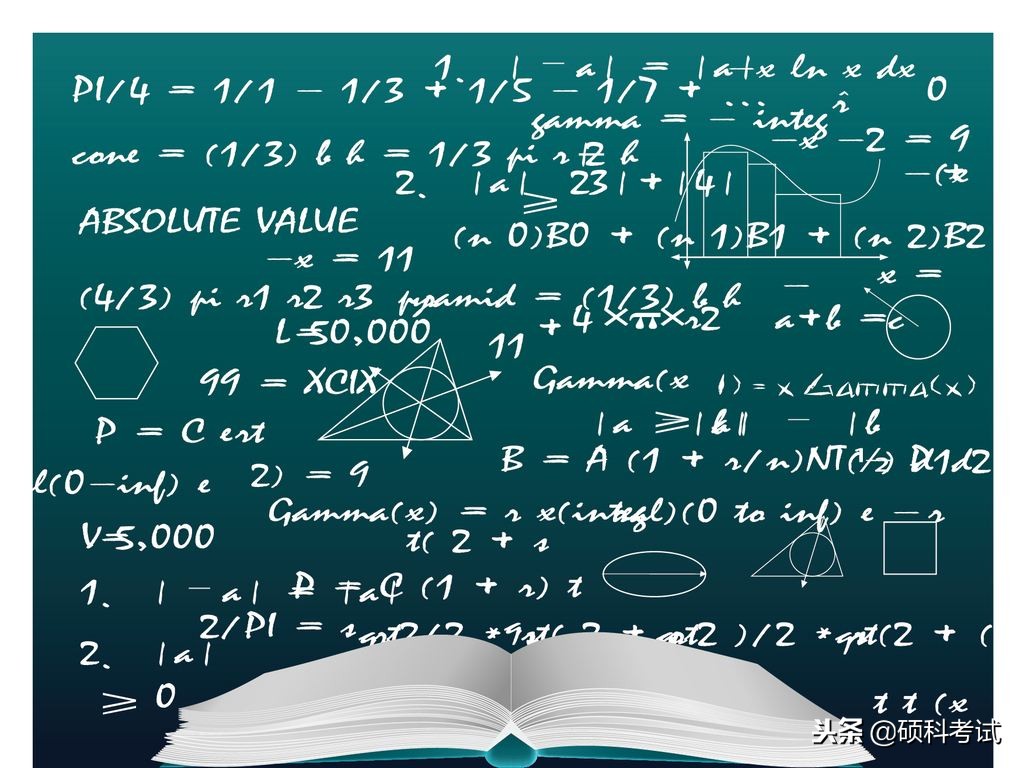 1. | - a| = |a+x ln x dx
PI/4 = 1/1 - 1/3 + 1/5 - 1/7 + ... 0
gamma = - integ r̂
-x -2 = 9
cone = (1/3) b h = 1/3 pi r 2 h
-(x
2. |a| ⩾ 23|+|4|
ABSOLUTE VALUE
(n 0)B0 + (n 1)B1 + (n 2)B2
-x = 11
x = -
(4/3) pi r1 r2 r3 pyramid = (1/3) b h
L=50,000
+ 4 ×π×r2
a+b =c
11
99 = XCIX
Gamma(x 1) = x Gamma(x)
P = C ert
|a ⩾ |b|| - |b
B = A (1 + r/n)NT(1/2) D1d2
l(0-inf) e 2) = 9
Gamma(x) = r x(integl)(0 to inf) e - r
V=5,000
t( 2 + s
1. | - a| = |a|
P = C (1 + r) t
2/PI = sqrt2/2 * qrt( 2 + sqrt2 )/2 * qrt(2 + (
2. |a|
⩾ 0
t t (x
头条 @硕科考试